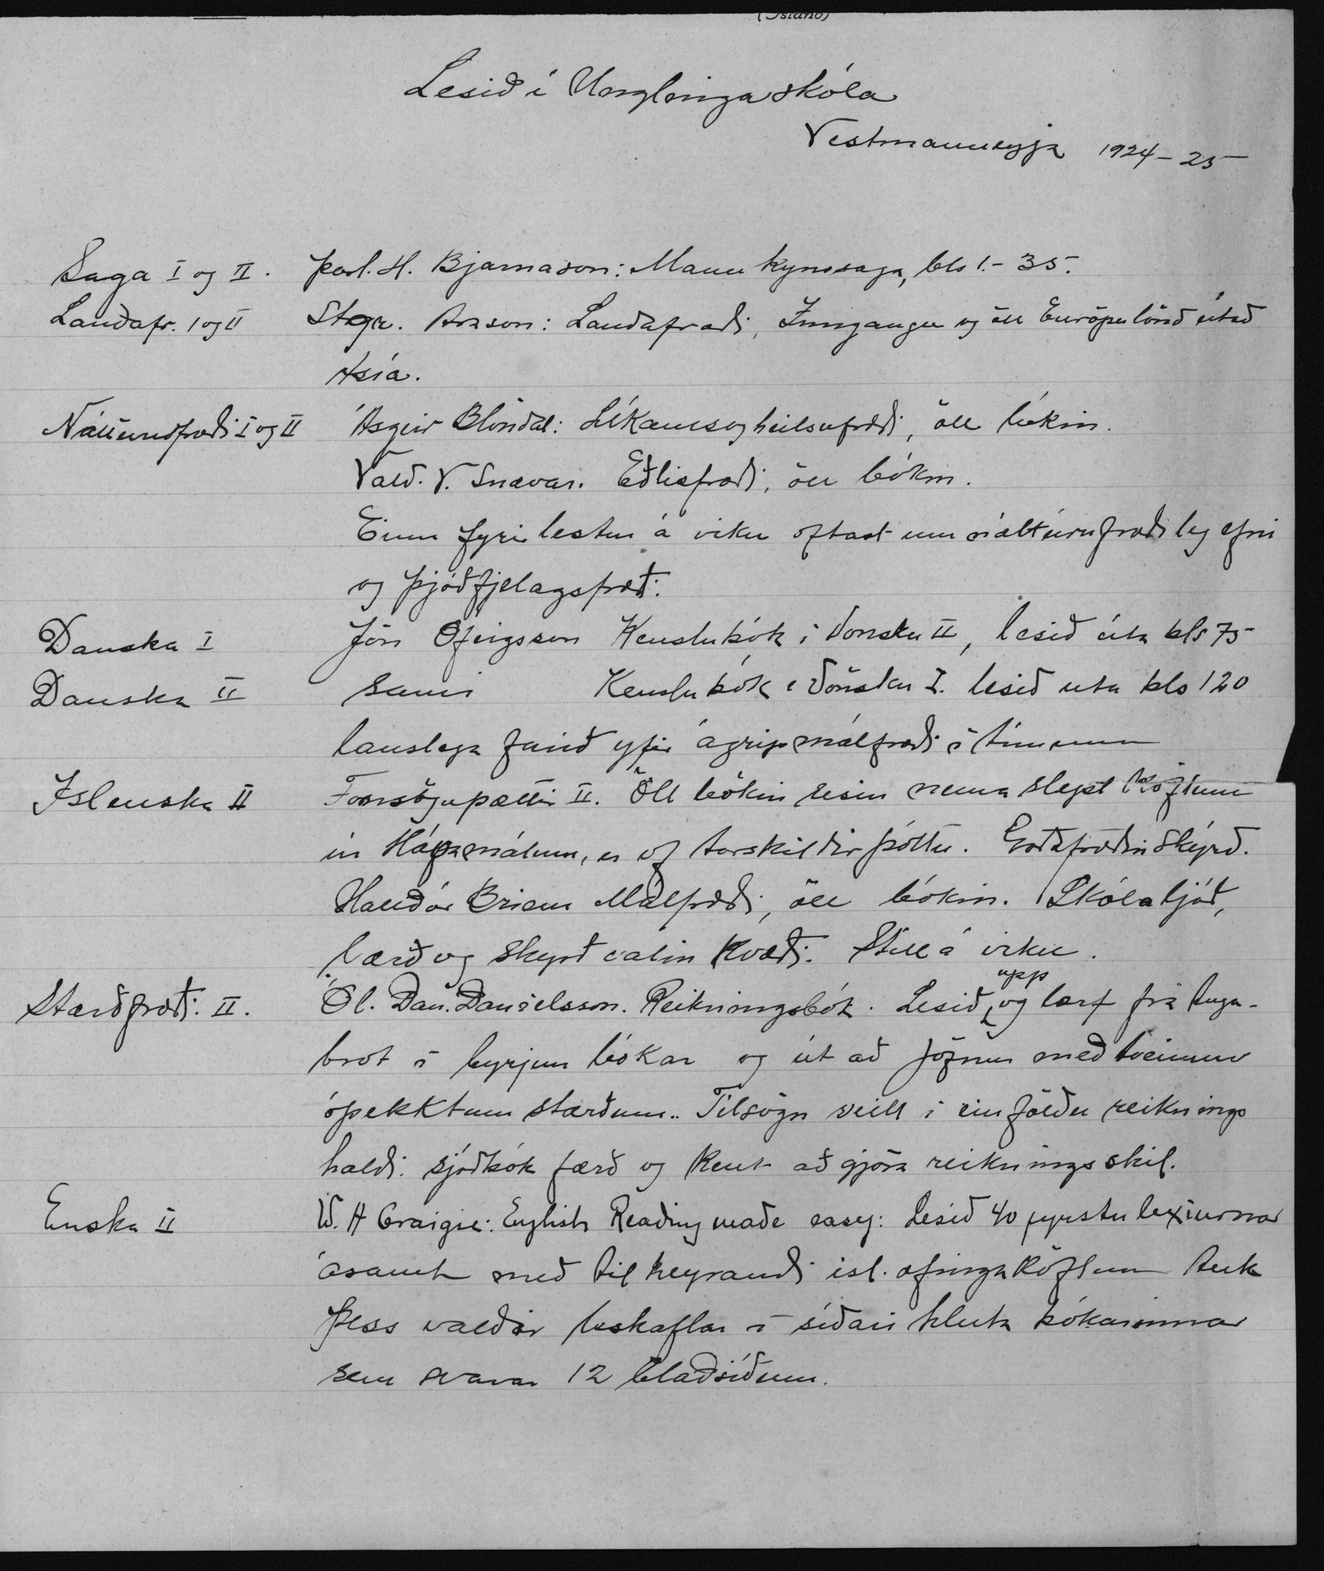 (Island)
Lesið í Unglingaskóla
Vestmanneyja 1924-25
Saga I og II. Þorl. H. Bjarnason: Mannkynssaga, bls 1.- 35.
Landafr. I og II Stgr. Arason: Landafræði, Inngangur og öll Európulönd út að
Asía.
Náttúrufræði I og II Ásgeir Blöndal: Líkams og heilsufræði, öll bókin.
Vald. V. Snævar. Eðlisfræði, öll bókin.
Einn fyrirlestur á viku oftast um náttúrufræðileg efni
og þjóðfjelagsfræði.
Danska I Jón Ófeigsson Kenslubók í dönsku II, lesið út á bls 75
Danska II sami Kenslubók í dönsku I. lesið út á bls 120
lauslega farið yfir ágrip málfræði í tímum
Íslenska II Fornsöguþættir II. Öll bókin lesin nema slept köflum
úr Hávamálum, er of torskildir þóttu. Goðafræðin skýrð.
Halldór Briem Málfræði, öll bókin. Skólaljóð,
lærð og skýrð valin kvæði. Stíll á viku.
Stærðfræði II. Ól. Dan. Daníelsson. Reikningsbók. Lesið upp og lært frá tuga-
brot í byrjun bókar og út að jöfnur með tveimur
óþekktum stærðum.. Tilsögn veitt í einföldu reiknings
haldi. sjóðbók færð og kent að gjöra reikningsskil.
Enska II W. H Craigie: English Reading made easy: Lesið 40 fyrstu lexiurnar
ásamt með tilheyrandi ísl. æfingaköflum Auk
þess valdir leskaflar í síðari hluta bókarinnar
sem svarar 12 blaðsíðum.